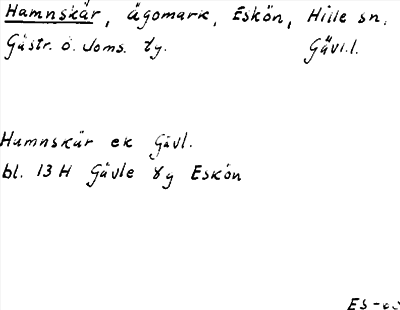 Hamnskär, ägomark, Eskön, Hille sn,
Gästr. ö. doms. tg. Gävl.l.
Hamnskär ek Gävl.
bl. 13 H Gävle 8g Eskön